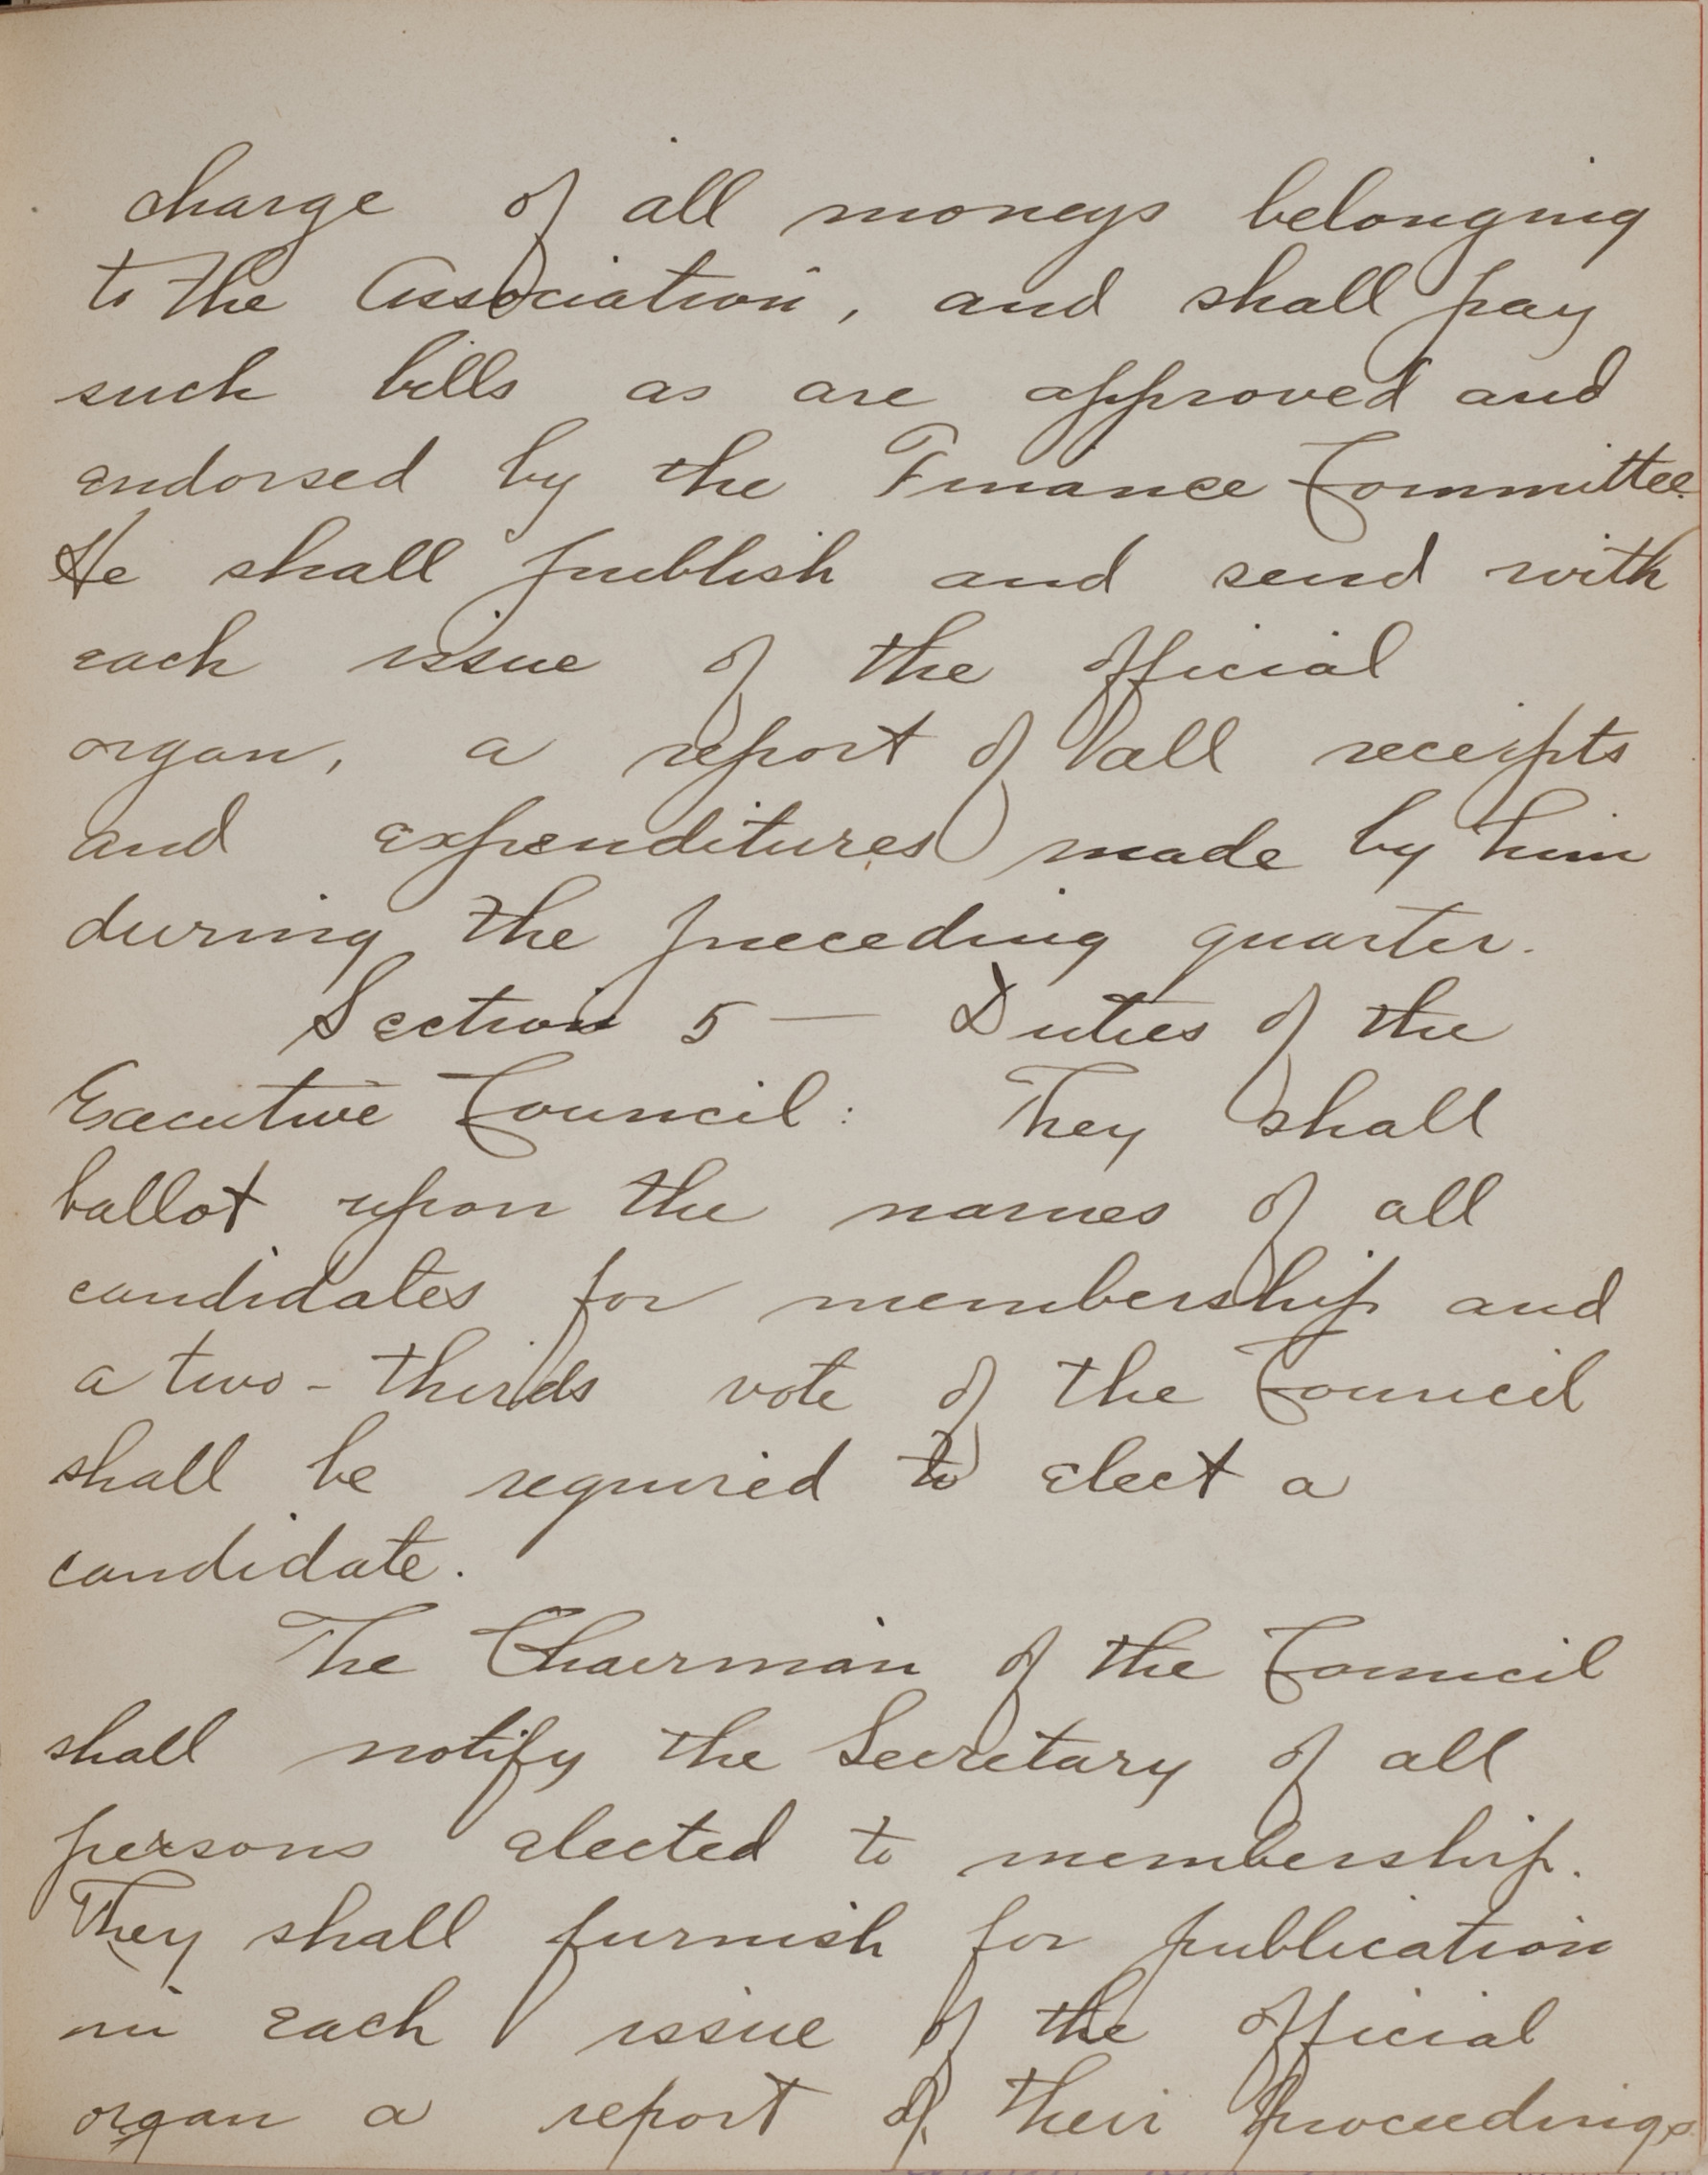 charge of all moneys belonging
to the Association, and shall pay
such bills as are approved and
endorsed by the Finance Committee.
He shall publish and send with
each issue of the official
organ, a report of all receipts
and expenditures made by him
during the preceding quarter.
Section 5 — Duties of the
Executive Council: They shall
ballot upon the names of all
candidates for membership and
a two-thirds vote of the Council
shall be required to elect a
candidate.
The Chairman of the Council
shall notify the Secretary of all
persons elected to membership.
They shall furnish for publication
in each issue of the official
organ a report of their proceedings.